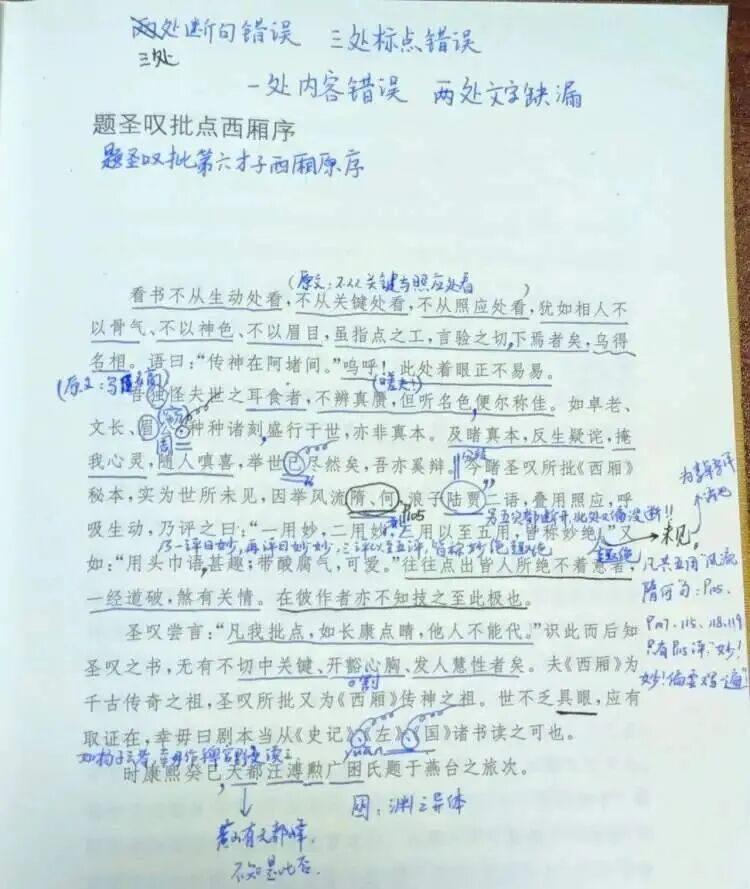 两处断句错误 三处标点错误
三处
一处内容错误 两处文字缺漏
题圣叹批点西厢序
题圣叹批第六才子西厢原序
(原文:不从关键与照应处看)
看书不从生动处看,不从关键处看,不从照应处看,犹如相人不
以骨气、不以神色、不以眉目,虽指点之工,言验之切下焉者矣,乌得
名相。语曰:“传神在阿堵间。”呜呼!此处着眼正不易易。
吾独怪夫世之耳食者,不辨真赝,但听名色便尔称佳。如卓老、
文长、眉公种种诸刻盛行于世,亦非真本。及睹真本,反生疑诧,掩
我心灵,随人嗔喜,举世已尽然矣,吾亦奚辩。今睹圣叹所批《西厢》
秘本,实为世所未见,因举风流隋、何,浪子陆贾二语,叠用照应,呼
P105
吸生动,乃评之曰:“一用妙,二用妙,三用以至五用,皆称妙绝”又
乃一评曰妙,再评曰妙妙,三评以至五评,皆称妙绝趣绝
趣绝
未见
如:“用头巾语甚趣;带酸腐气,可爱。”往往点出皆人所绝不着意者,
一经道破,煞有关情。在彼作者亦不知技之至此极也。
凡共五用“风流
隋何”句:P105、
P107、115、118、119
只有P115评“妙!
圣叹尝言:“凡我批点,如长康点睛,他人不能代。”识此而后知
圣叹之书,无有不切中关键、开豁心胸、发人慧性者矣。夫《西厢》为
千古传奇之祖,圣叹所批又为《西厢》传神之祖。世不乏具眼,应有
取证在,幸毋曰剧本当从《史记》《左》《国》诸书读之可也。
时康熙癸巳天都汪溥勲广囦氏题于燕台之旅次。
囦:渊之异体
黄山有天都峰
不知是此否.